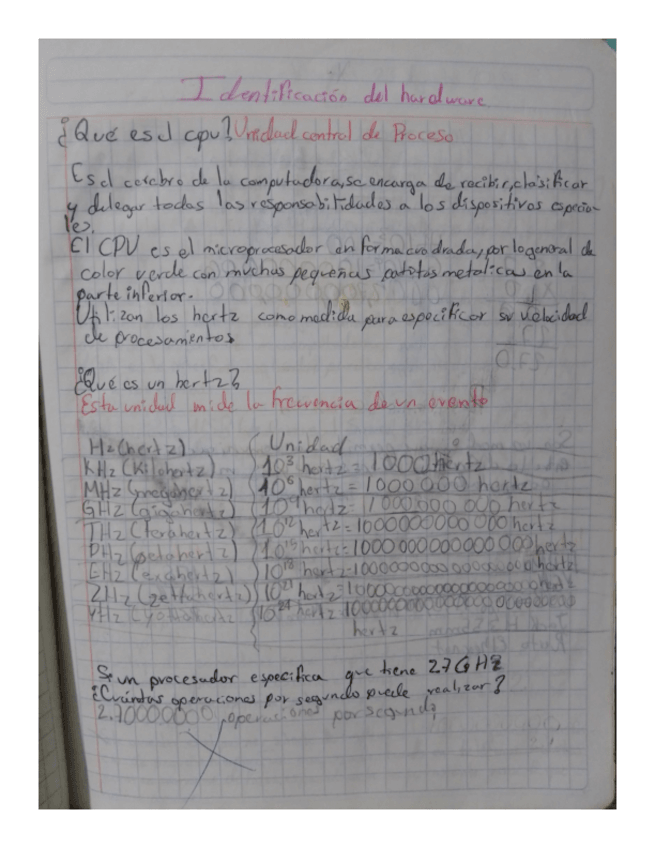 Identificación del hardware
¿Qué es el cpu? Unidad control de Proceso
Es el cerebro de la computadora, se encarga de recibir, clasificar
y delegar todas las responsabilidades a los dispositivos especia-
les.
El CPU es el microprocesador en forma cuadrada, por lo general de
color verde con muchas pequeñas patitas metalicas en la
parte inferior.
Utilizan los hertz como medida para especificar su velocidad
de procesamientos
¿Qué es un hertz?
Esta unidad mide la frecuencia de un evento
Hz (hertz) Unidad
KHz (Kilohertz) 10³ hertz = 1000 hertz
MHz (megahertz) 10⁶ hertz = 1000 000 hertz
GHz (gigahertz) 10⁹ hertz = 1 000 000 000 hertz
THz (terahertz) 10¹² hertz = 1000000000 000 hertz
PHz (petahertz) 10¹⁵ hertz = 1000 000000000 000 hertz
EHz (exahertz) 10¹⁸ hertz
ZHz (zettahertz) 10²¹ hertz
YHz (yottahertz) 10²⁴ hertz
hertz
Si un procesador especifica que tiene 2.7 GHz
¿Cuántas operaciones por segundo puede realizar?
operaciones por segundo